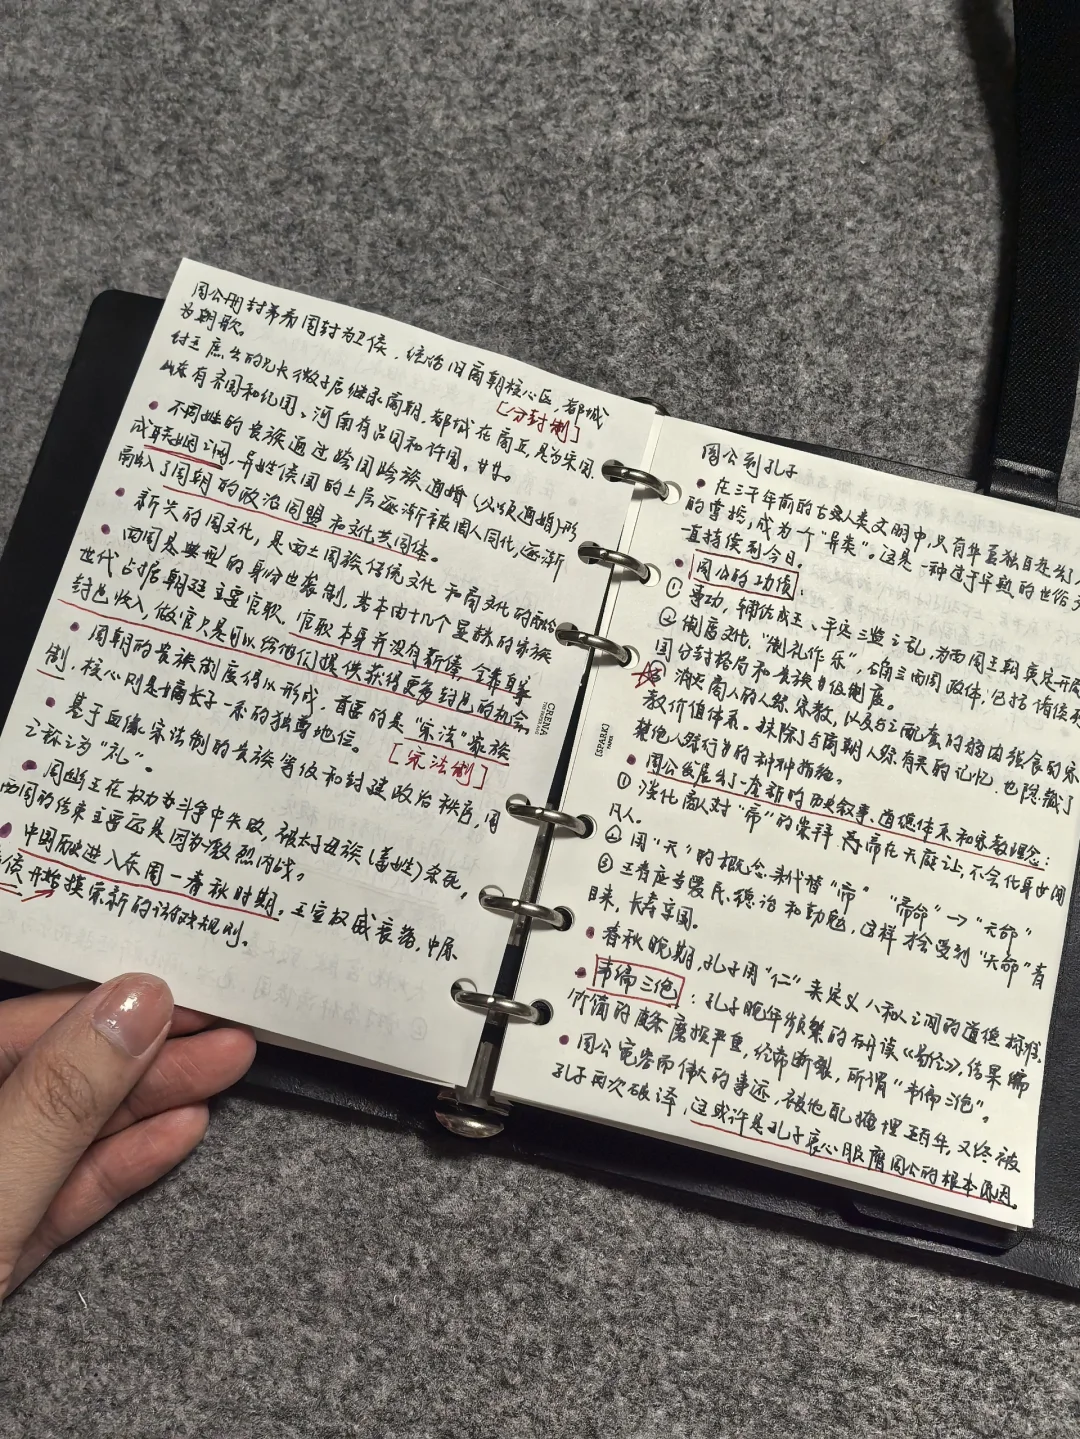 周公册封弟弟周封为卫侯，统治旧商朝核心区，都城
为朝歌。
[分封制]
纣王庶出的兄长微子启继承商朝，都城在商丘，是为宋国。
山东有齐国和纪国、河南有吕国和许国，廿廿。
不同姓的贵族通过跨国跨族通婚（必须通婚）形
成联姻之网，异姓侯国的上层逐渐被周人同化，逐渐
融入了周朝的政治同盟和文化共同体。
新兴的周文化，是西土周族传统文化和商文化的融合
西周是典型的身份世袭制，基本由十几个显赫的家族
世代占据朝廷主要官职，官职本身并没有薪俸，全靠自家
封邑收入，做官只是可以给他们提供获得更多封邑的机会。
周朝的贵族制度得以形成，首要的是“宗法”家族
制，核心则是嫡长子一系的独尊地位。
[宗法制]
基于血缘宗法制的贵族等级和封建政治秩序，周
之称之为“礼”。
周幽王在权力斗争中失败，被太子母族（姜姓）杀死，
西周的结束主要还是因为激烈内战。
中国历史进入东周—春秋时期，王室权威衰落，中原
侯开始摸索新的游戏规则。
CRENA
[SPARK]
周公到孔子
在三千年前的古典人类文明中，只有华夏独自走出了
的掌控，成为一个“异类”。这是一种过于早熟的世俗
一直持续到今日。
周公的功绩：
① 事功，辅佐成王、平定三监之乱，为西周王朝奠定开
② 制度文化，“制礼作乐”，确立西周政体，包括诸侯
国分封格局和贵族等级制度。
③ 消灭商人的人祭宗教，以及与之配套的弱肉强食的宗
教价值体系。抹除了与商朝人祭有关的记忆，也隐藏了
禁绝人祭行为的种种措施。
周公发展出了一套新的历史叙事、道德体系和宗教理念：
① 淡化商人对“帝”的崇拜，帝在天庭让，不会化身世间
凡人。
② 用“天”的概念来代替“帝” “帝命”→“天命”
③ 王者应当爱民、德治和勤勉，这样才会受到“天命”眷
目来，长寿享国。
春秋晚期，孔子用“仁”来定义人和人之间的道德标准。
韦编三绝：孔子晚年频繁的研读《易经》，结果编
竹简的皮条磨损严重，经常断裂，所谓“韦编三绝”。
周公宽容而伟大的事迹，被他配掩埋五百年，又终被
孔子再次破译，这或许是孔子衷心服膺周公的根本原因。